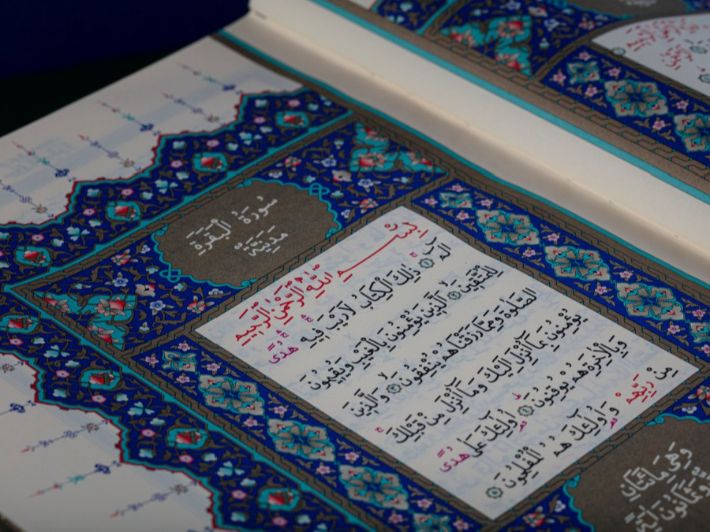 سُورَةُ الْبَقَرَةِ
مَدَنِيَّةٌ
بِسْمِ اللّٰهِ الرَّحْمٰنِ الرَّحِيمِ
الٓمٓ ۝ ذٰلِكَ الْكِتَابُ لَا رَيْبَ فِيهِ هُدًى
لِلْمُتَّقِينَ ۝ الَّذِينَ يُؤْمِنُونَ بِالْغَيْبِ وَيُقِيمُونَ
الصَّلٰوةَ وَمِمَّا رَزَقْنَاهُمْ يُنْفِقُونَ ۝ وَالَّذِينَ
يُؤْمِنُونَ بِمَا اُنْزِلَ اِلَيْكَ وَمَا اُنْزِلَ مِنْ قَبْلِكَ
وَبِالْاٰخِرَةِ هُمْ يُوقِنُونَ ۝ اُولٰئِكَ عَلٰى هُدًى
مِنْ رَبِّهِمْ وَاُولٰئِكَ هُمُ الْمُفْلِحُونَ ۝
وَهِيَ مِائَتَانِ